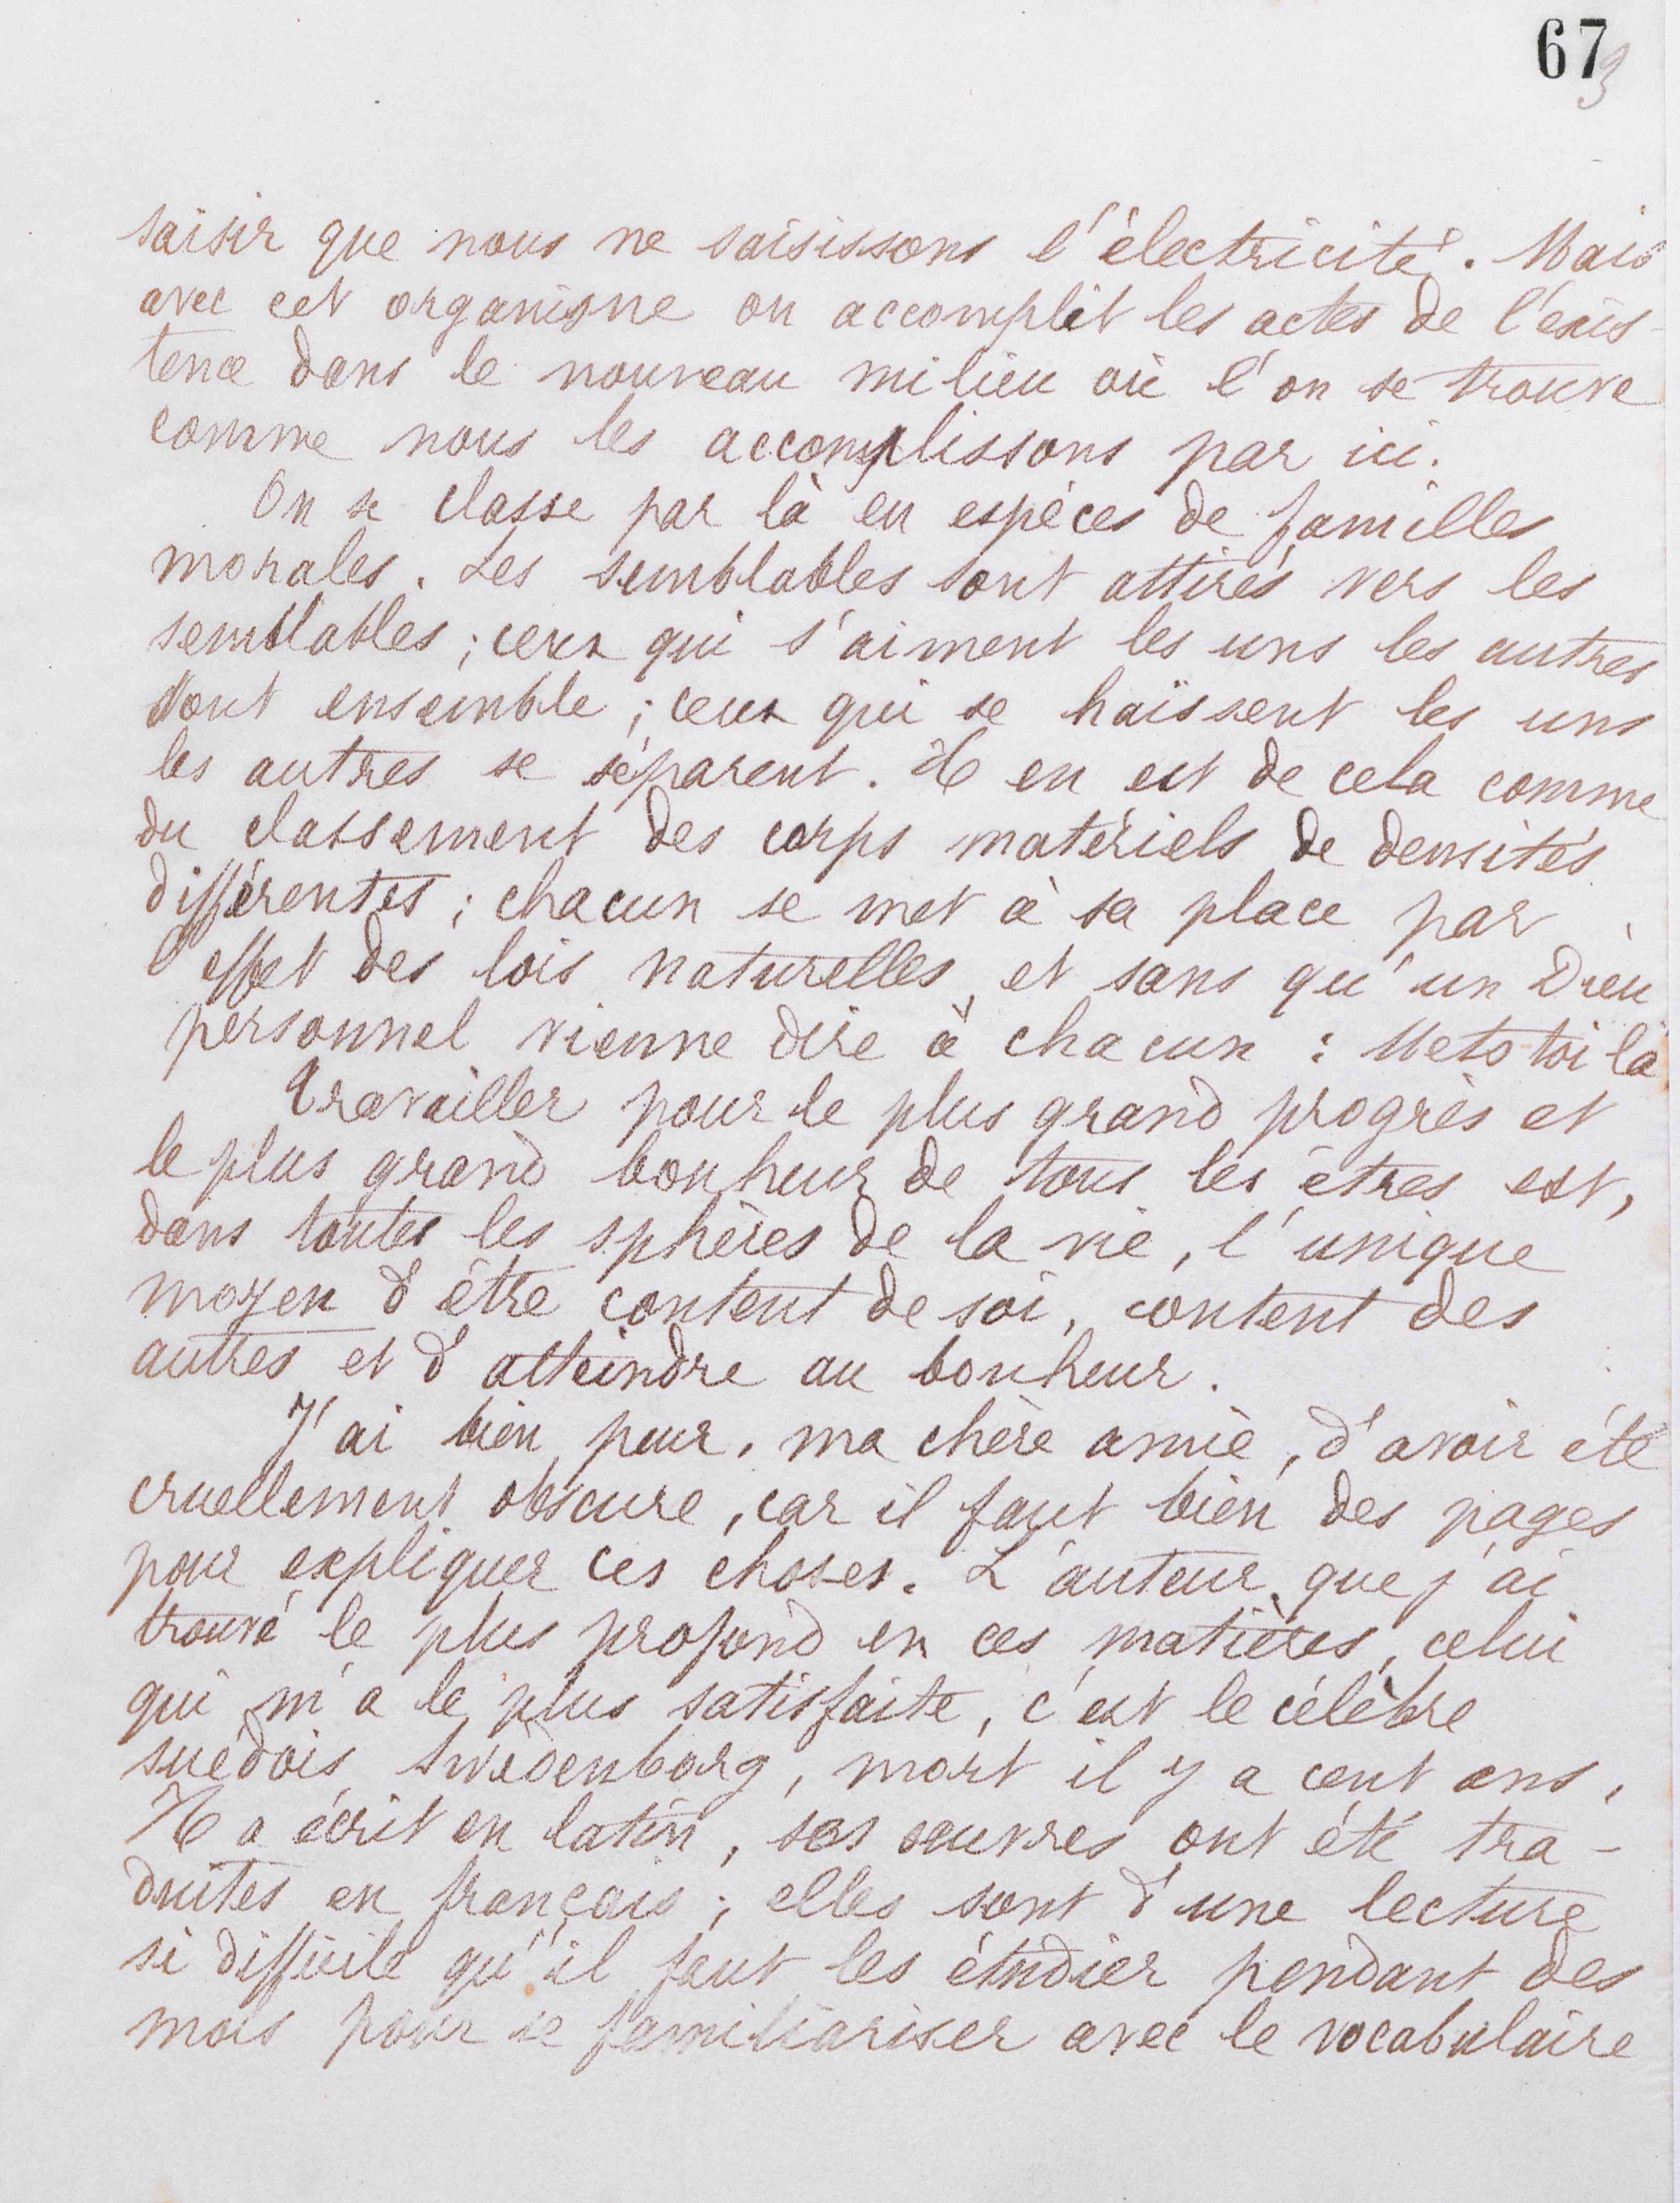 673
saisir que nous ne saisissons l'électricité. Mais
avec cet organisme on accomplit les actes de l'exis-
tence dans le nouveau milieu où l'on se trouve
comme nous les accomplissons par ici.
On se classe par là en espèces de familles
morales. Les semblables sont attirés vers les
semblables ; ceux qui s'aiment les uns les autres
vont ensemble ; ceux qui se haïssent les uns
les autres se séparent. Il en est de cela comme
du classement des corps matériels de densités
différentes ; chacun se met à sa place par
effet des lois naturelles et sans qu'un Dieu
personnel vienne dire à chacun : Mets toi là
Travailler pour le plus grand progrès et
le plus grand bonheur de tous les êtres est,
dans toutes les sphères de la vie, l'unique
moyen d'être content de soi, content des
autres et d'atteindre au bonheur.
J'ai bien peur, ma chère amie, d'avoir été
cruellement obscure, car il faut bien des pages
pour expliquer ces choses. L'auteur que j'ai
trouvé le plus profond en ces matières, celui
qui m'a le plus satisfaite, c'est le célèbre
suédois Swedenborg, mort il y a cent ans,
Il a écrit en latin, ses oeuvres ont été tra-
duites en français ; elles sont d'une lecture
si difficile qu'il faut les étudier pendant des
mois pour se familiariser avec le vocabulaire